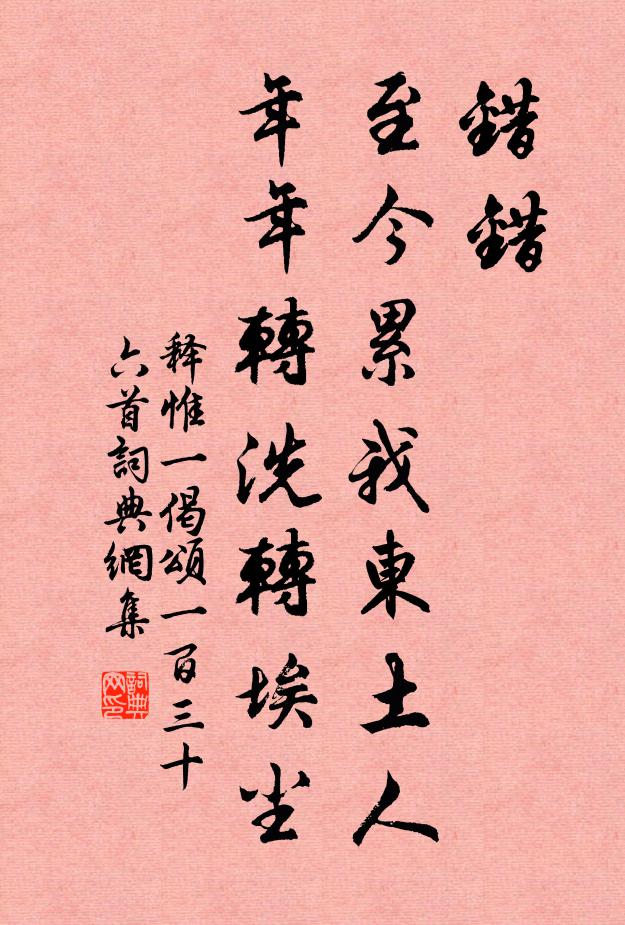 錯錯
至今累我東土人
年年轉洗轉埃坌
释惟一偈頌一百三十
六首詞典網集
詞典
网印